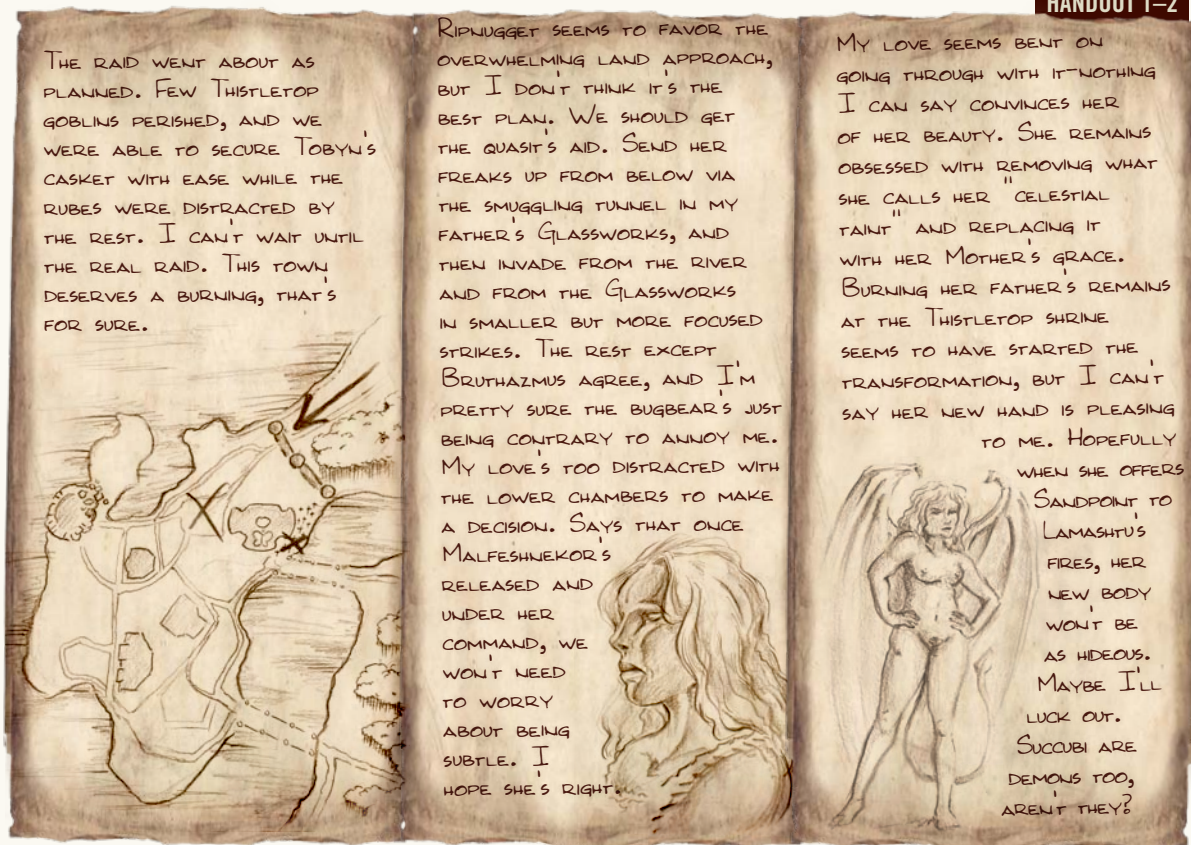 HANDOUT 1–2
THE RAID WENT ABOUT AS
PLANNED. FEW THISTLETOP
GOBLINS PERISHED, AND WE
WERE ABLE TO SECURE TOBYN'S
CASKET WITH EASE WHILE THE
RUBES WERE DISTRACTED BY
THE REST. I CAN'T WAIT UNTIL
THE REAL RAID. THIS TOWN
DESERVES A BURNING, THAT'S
FOR SURE.
RIPNUGGET SEEMS TO FAVOR THE
OVERWHELMING LAND APPROACH,
BUT I DON'T THINK IT'S THE
BEST PLAN. WE SHOULD GET
THE QUASIT'S AID. SEND HER
FREAKS UP FROM BELOW VIA
THE SMUGGLING TUNNEL IN MY
FATHER'S GLASSWORKS, AND
THEN INVADE FROM THE RIVER
AND FROM THE GLASSWORKS
IN SMALLER BUT MORE FOCUSED
STRIKES. THE REST EXCEPT
BRUTHAZMUS AGREE, AND I'M
PRETTY SURE THE BUGBEAR'S JUST
BEING CONTRARY TO ANNOY ME.
MY LOVE'S TOO DISTRACTED WITH
THE LOWER CHAMBERS TO MAKE
A DECISION. SAYS THAT ONCE
MALFESHNEKOR'S
RELEASED AND
UNDER HER
COMMAND, WE
WON'T NEED
TO WORRY
ABOUT BEING
SUBTLE. I
HOPE SHE'S RIGHT.
MY LOVE SEEMS BENT ON
GOING THROUGH WITH IT—NOTHING
I CAN SAY CONVINCES HER
OF HER BEAUTY. SHE REMAINS
OBSESSED WITH REMOVING WHAT
SHE CALLS HER "CELESTIAL
TAINT" AND REPLACING IT
WITH HER MOTHER'S GRACE.
BURNING HER FATHER'S REMAINS
AT THE THISTLETOP SHRINE
SEEMS TO HAVE STARTED THE
TRANSFORMATION, BUT I CAN'T
SAY HER NEW HAND IS PLEASING
TO ME. HOPEFULLY
WHEN SHE OFFERS
SANDPOINT TO
LAMASHTU'S
FIRES, HER
NEW BODY
WON'T BE
AS HIDEOUS.
MAYBE I'LL
LUCK OUT.
SUCCUBI ARE
DEMONS TOO,
AREN'T THEY?